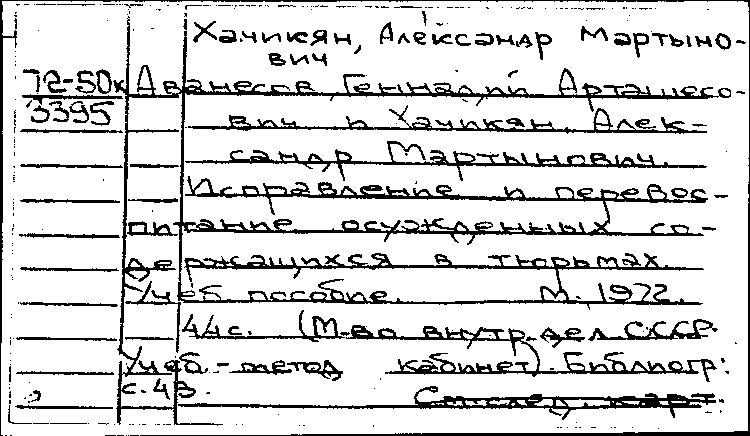 Хачикян, Александр Мартыно-
вич
72-50к Аванесов, Геннадий Арташесо-
3395
вич и Хачикян, Алек-
сандр Мартынович.
Исправление и перевос-
питание осужденных со-
держащихся в тюрьмах.
Учеб. пособие. М., 1972.
44с. (М-во внутр. дел СССР.
Учеб.-метод. кабинет). Библиогр:
с. 43.
См. след. карт.